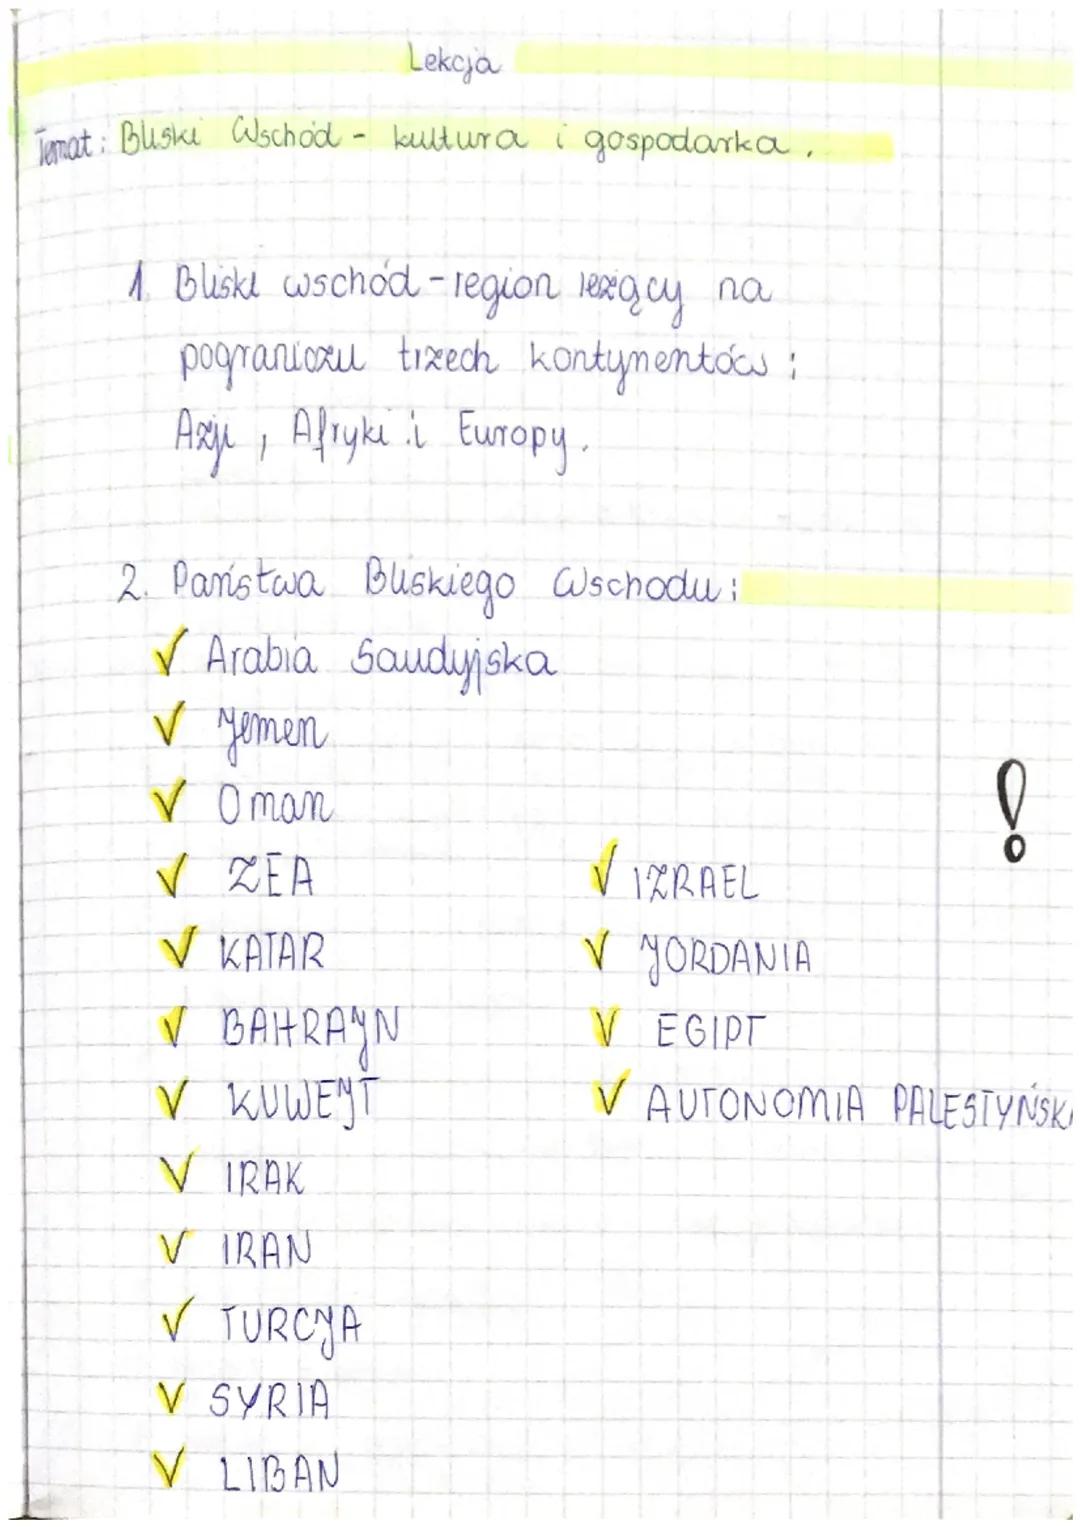 Lekcja
Temat: Bliski Wschód - kultura i gospodarka.
1. Bliski wschód - region leżący na
pograniczu trzech kontynentów:
Azji, Afryki i Europy.
2. Państwa Bliskiego Wschodu:
✓ Arabia Saudyjska
✓ Jemen
✓ Oman
!
✓ ZEA
✓ IZRAEL
✓ KATAR
✓ JORDANIA
✓ BAHRAJN
✓ EGIPT
✓ KUWEJT
✓ AUTONOMIA PALESTYŃSKA
✓ IRAK
✓ IRAN
✓ TURCJA
✓ SYRIA
✓ LIBAN